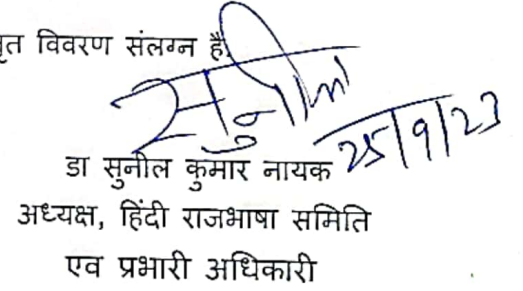 विवरण संलग्न है
सुनील
25/9/23
डा सुनील कुमार नायक
अध्यक्ष, हिंदी राजभाषा समिति
एव प्रभारी अधिकारी